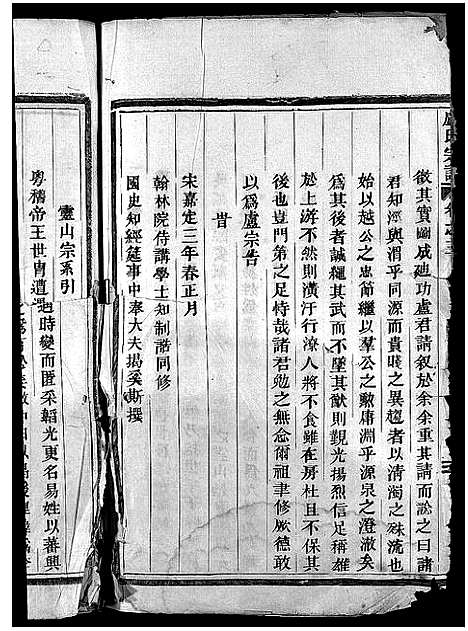 盧氏宗譜
欲其實圖咸廸功盧君請叙於余余重其請而訟之曰諸
君知涇與渭乎同源而貴賤之異趨者以清濁之殊流也
始以越公之忠節繼以羣公之勲庸淵乎源泉之澄澈矣
爲其後者誠繩其武而不墜其猷則觀光揚烈信足稱雄
於上游不然則潢汙行潦人將不食雖在房杜且不保其
後也豈門第之足恃哉諸君勉之無念爾祖聿修厥德敢
以爲盧宗告
旹
宋嘉定三年春正月
翰林院侍講學士知制誥同修
國史知經筵事中奉大夫揭奚斯撰
靈山宗系引
粤稽帝王世胄遭
時變而匿采韜光東名易姓以蕃興